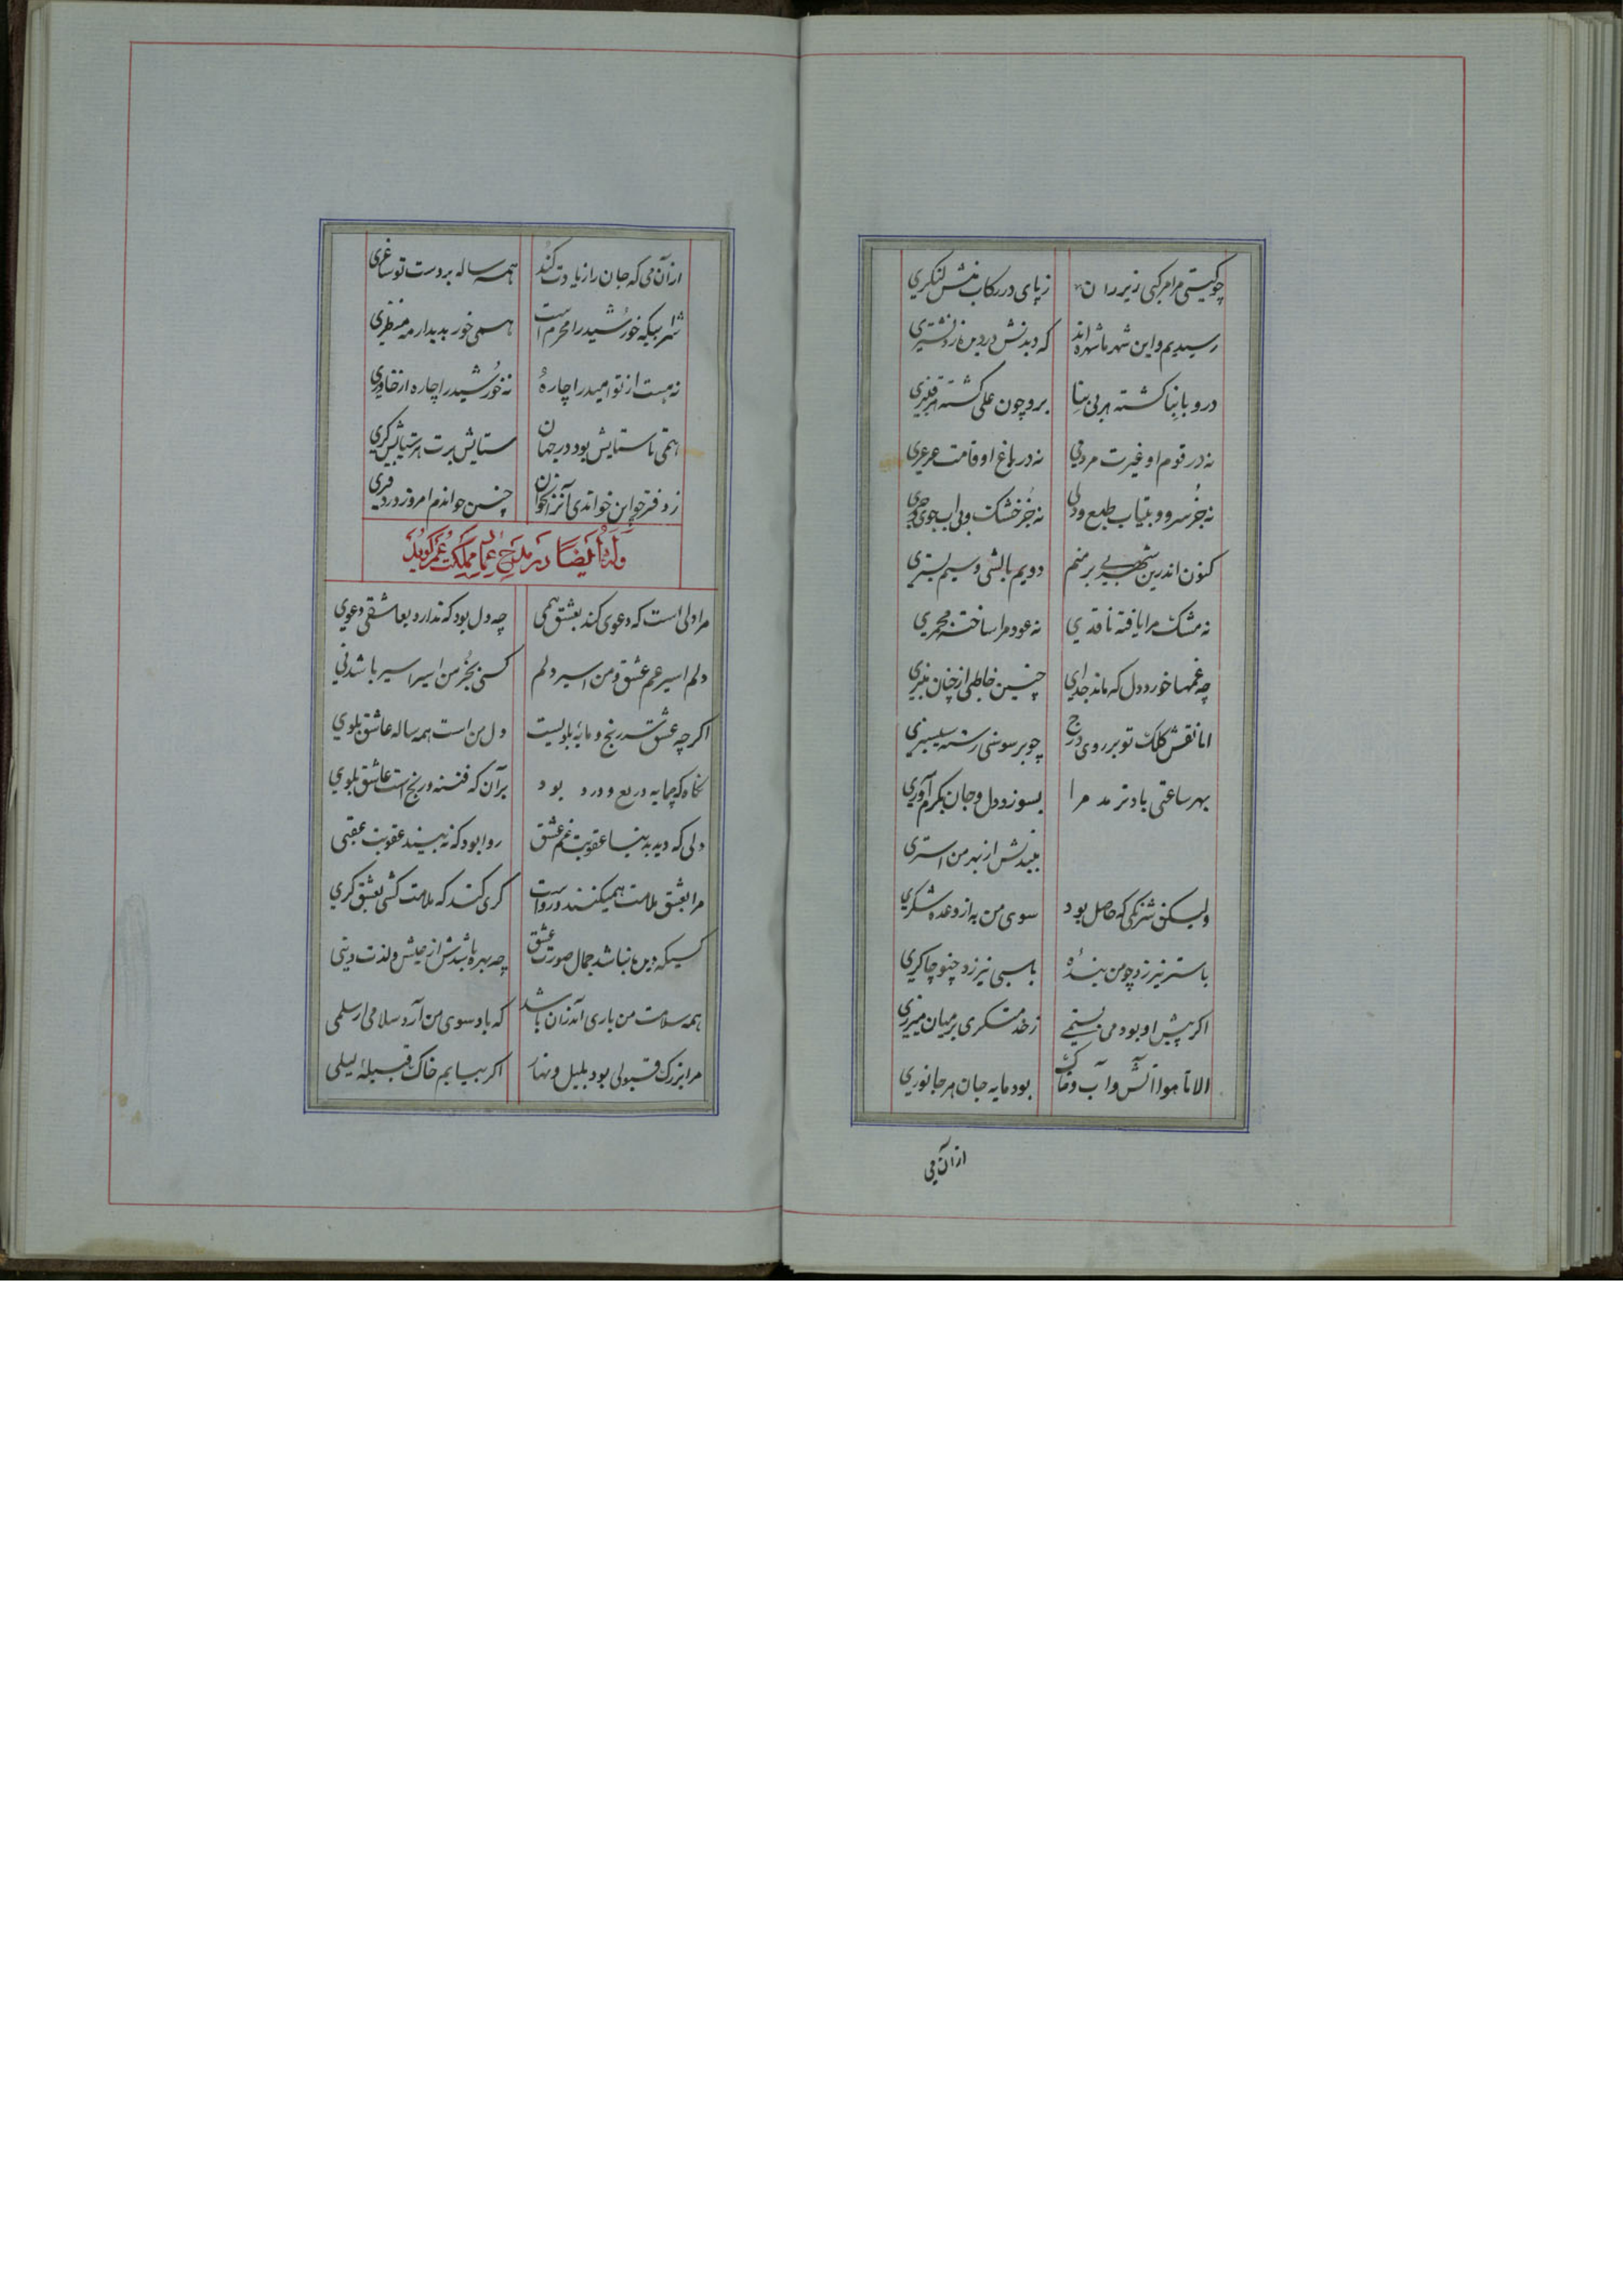 چو کیتی مرا مرکبی زیر ران زپای در رکاب منش لنکری
رسیدیم و این شهر ما شهره اند که دیدنش در دیده زد نشتری
درو بابنا کشته هر بی بنا برو چون علی کشته هر قنبری
نه در قوم او غیرت مردمی نه در باغ او قامت عرعری
نه جز سرو و بیتاب طبع و دلی نه جز خشک و بی اب جوی و جری
کنون اندرین شهر بر منم دویم بالشی و سیم بستری
نه مشک مرا یافته ناقدی نه عود مرا ساخته مجمری
چه غمها خورد دل که ماند جدای چنین خاطبی از چنان منبری
اما نقش کلک تو بر روی درج چو بر سوسنی رسته سیسنبری
بهر ساعتی باد نرمد مرا بسوزد دل و جان بکرم آوری
ببیندش از بهر من استری
ولیکن شترکی که حاصل بود سوی من به از وعده شکری
باستر نیرزد چو من بندهٔ باسبی نیرزد چنو چاکری
اکر پیش او بودمی نیستمی زخدمتکری بر میان میزری
الا تا هوا آتش و آب و خاک بود مایه جان هر جانوری
از آن می
از آن می که جان را زیادت کند همه ساله بر دست تو ساغری
شرابیکه خورشید را محرم است همی خور بدیدار مه منظری
نه هست از تو امید را چارهٔ نه خورشید را چاره از خاوری
همی تا ستایش بود در جهان ستایش برت هر ستایش کری
ز دفتر جو این خواندی آنرا بخوان چنین خواندم امروز در دفتری
وله ایضا در مدح عماد مملکت عمر کوید
مرا دلی است که دعوی کند بعشق همی چه دل بود که ندارد بعاشقی دعوی
دلم اسیر غم عشق و من اسیر دلم کسی بجز من اسیر اسیر باشد نی
اکر چه عشق سر رنج و مایهٔ بلویست دل من است همه ساله عاشق بلوی
بود برآن که فتنه و رنج است عاشق بلوی
دلی که دید بدنیا عقوبت غم عشق روا بود که نبیند عقوبت عقبی
مرا بعشق ملامت همیکنند و رواست کری کند که ملامت کشی بعشق کری
کسیکه دین نباشد جمال صورت عشق چه بهره باشدش از عیش و لذت دینی
همه سلامت من باری آنزمان باشد که باد سوی من آرد سلامی از سلمی
مرا بزرک قبولی بود بلیل و نهار اکر بیایم خاک قبیلهٔ لیلی